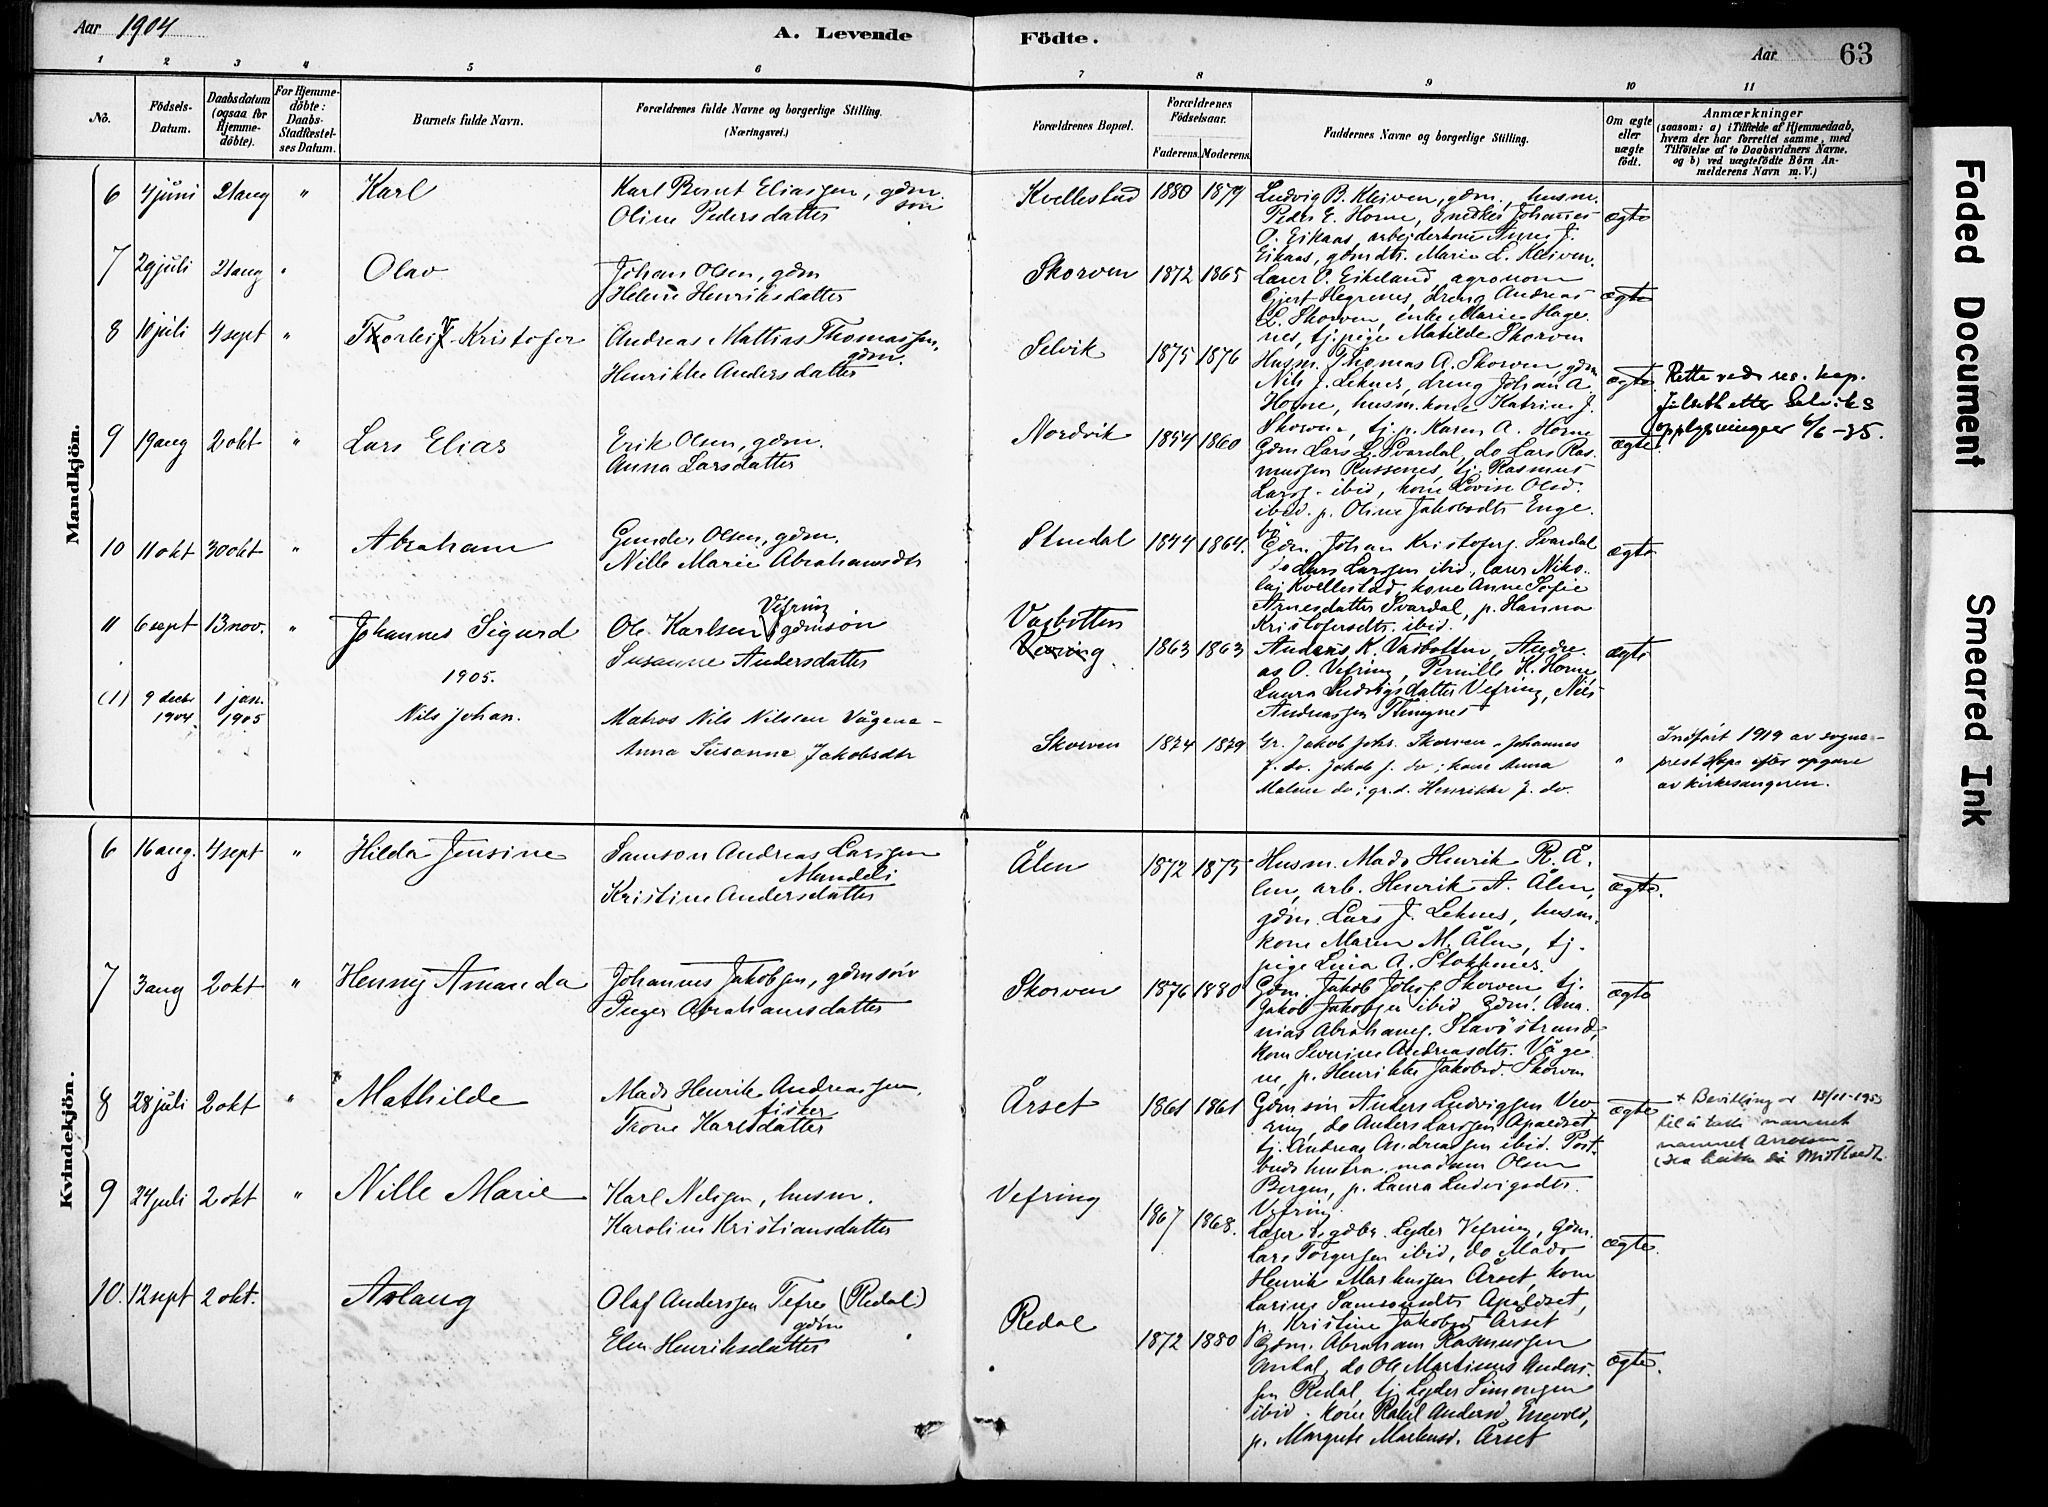 Aar 1904
A. Levende Födte.
Aar 63
1 2 3 4 5 6 7 8 9 10 11
No.
Födsels-Datum.
Daabsdatum (ogsaa for Hjemme-döbte).
For Hjemme-döbte: Daabs-Stadfæstel-ses Datum.
Barnets fulde Navn.
Forældrenes fulde Navne og borgerlige Stilling. (Næringsvei.)
Forældrenes Bopæl.
Forældrenes Födselsaar.
Faderens. Moderens.
Faddernes Navne og borgerlige Stilling.
Om ægte eller uægte födt.
Anmærkninger
(saasom: a) i Tilfælde af Hjemmedaab,
hvem der har forrettet samme, med
Tilföielse af to Daabsvidners Navne,
og b) ved uægtefödte Börn An-
melderens Navn m. V.)
Mandkjön.
6 4 juni 21 aug " Karl
Karl Bernt Eliassen, gdm
sön
Oline Pedersdatter
Kvellestad 1880 1879
Ludvig B. Kleiven, gdm., husm.
Peder E. Horne, snedker Johannes
O. Eikaas, arbejderkone Anne J.
Eikaas, gdmdtr. Marie L. Kleiven.
ægte
7 29 juli 21 aug " Olav
Johan Olsen, gdm
Helene Henriksdatter
Skorven 1872 1865
Lærer O. Eikeland, agronom
Gjert Hegrenes, dreng Andreas
L. Skorven, enke Marie Hage
nes, tj. pige Matilde Skorven
ægte
8 10 juli 4 sept " Thorleif Kristofer
Andreas Mattias Thomassen,
gdm.
Henrikke Andersdatter
Selvik 1875 1876
Husm. Thomas A. Skorven gdm
Nils J. Lehnes, dreng Johan A
Horne, husm. kone Katrine J.
Skorven, tj. p. Karen A. Horne
ægte
Rette ved res. kap.
Julseth etter Selviks
opplysninger 6/6-35.
9 19 aug 2 okt " Lars Elias
Erik Olsen, gdm.
Anna Larsdatter
Nordvik 1854 1860
Gdm Lars L. Svardal, do Lars Ras-
mussen Russenes, tj. Rasmus
Larss. ibid, kone Lovise Olsd.
ibid. p. Oline Jakobsdtr Enge
bö
ægte.
10 11 okt 30 okt " Abraham
Gunder Olsen, gdm.
Nille Marie Abrahamsdtr
Stendal 1844 1864.
Gdm. Johan Kristofers. Svardal
do Lars Larssen ibid, lærer Niko-
laj Kvellestad, kone Anne Sofie
Arnesdatter Svardal, p. Hanna
Kristofersdtr. ibid.
ægte
11 6 sept 13 nov. " Johannes Sigurd
Ole Karlsen Vefring gdmsön
Susanne Andersdatter
Vasbotten
Vevring. 1863 1863
Anders K. Vasbotten, Andre-
as O. Vefring, Pernille K. Horne
Laura Ludvigsdatter Vefring, Nils
Andreassen Thingnes
ægte
1905.
(1) 9 decbr 1904. 1 jan. 1905 Nils Johan.
Matros Nils Nilsen Vågene -
Anna Susanne Jakobsdtr
Skorven 1874 1879
Gr. Jakob Johs. Skorven, Johannes
J. do. Jakob J. do; kone Anna
Malene do; gr.d. Henrikke J. do.
"
Indført 1919 av sogne-
prest Hope efter opgave
av kirkesangeren.
Kvindekjön.
6 16 aug. 4 sept " Hilda Jensine
Samson Andreas Larssen
Mundeli
Kristine Andersdatter
Ålen 1872 1875
Husm. Mads Henrik R. Å-
len, arb. Henrik A. Ålen,
gdm. Lars J. Lehnes, husm.
kone Maren M. Ålen, tj.
pige Lina A. Stokkenes.
ægte.
7 3 aug 2 okt " Henny Amanda
Johannes Jakobsen, gdmsön
Inger Abrahamsdatter
Skorven 1876 1880
Gdm. Jakob Johs. Skorven tj.
Jakob Jakobsen ibid Gdm. Ana-
nias Abrahams. Stavöstrand,
kone Severine Andreasdtr. Våge
ne, p. Henrikke Jakobsd. Skorven
ægte
8 28 juli 2 okt " + Mathilde
Mads Henrik Andreassen,
fisker
Trone Karlsdatter
Årset 1861 1861
Gdm. sön Anders Ludvigsen Vev-
ring, do Anders Larssen Apaldset
tj. Andreas Andreassen ibid. Post-
buds hustru madam Olsen
Bergen, p. Laura Ludvigsdtr.
Vefring.
ægte
+ Bevilling av 13/11-1953
til å ta namnet
9 24 juli 2 okt " Nille Marie
Karl Nelssen, husm.
Karoline Kristiansdatter
Vefring 1867 1868.
Lægd Lyder Vefring, Gdm.
Lars Torgersen ibid, do Mads
Henrik Markussen Årset, kone
Larine Samsonsdtr Apaldset,
p. Kristine Jakobsd Årset
ægte.
10. 12 sept 2 okt. Aslaug
Olaf Anderssen Tefre (Redal)
gdm
Elen Henriksdatter
Redal 1872 1880
Gdm. Abraham Rasmussen
Ordal, do Ole Martinus Anders-
sen Redal, tj. Lyder Simonsen
ibid. kone Rakel Andersd. Espevold,
p. Margrete Markusd. Årset
ægte.
Faded Document
Smeared Ink